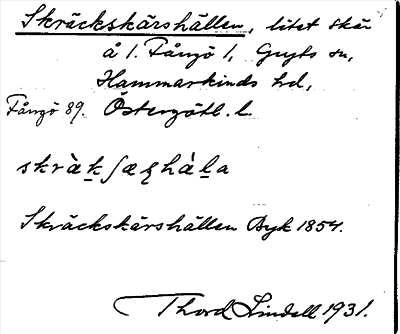 Skräckskärshällen, litet skär
å 1. Fångö 1, Gryts sn,
Hammarkinds hd,
Fångö 89. Östergötl. l.
skràk ʃæꞎhàla
Skräckskärshällen Byk 1854.
Thord Lindell 1931.